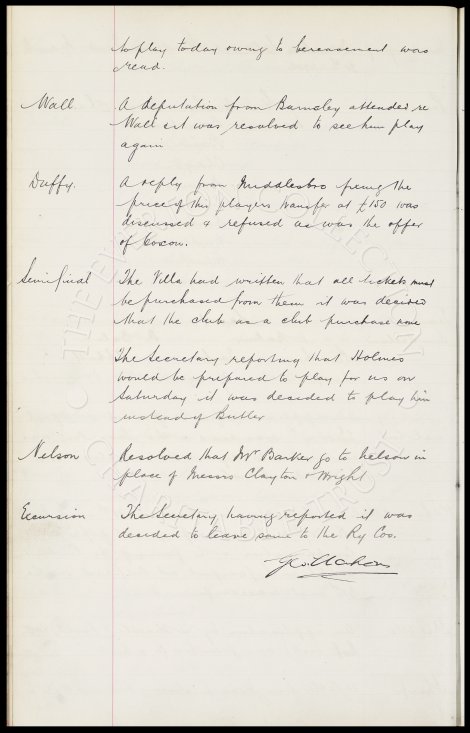 to play today owing to bereavement was
read.
Wall. A deputation from Barnsley attended re
Wall & it was resolved to see him play
again
Duffy. A reply from Middlesbro fixing the
price of this players transfer at £150 was
discussed & refused as was the offer
of
Semi final The Villa had written that all tickets must
be purchased from them it was decided
that the club as a club purchase none
The Secretary reporting that Holmes
would be prepared to play for us on
Saturday it was decided to play him
instead of Butler
Nelson Resolved that Mr Barker go to Nelson in
place of Messrs Clayton & Wright
Excursion The Secretary having reported it was
decided to leave same to the Ry Cos.
Geo Mahon
THE EVERTON COLLECTION
CHARITABLE TRUST